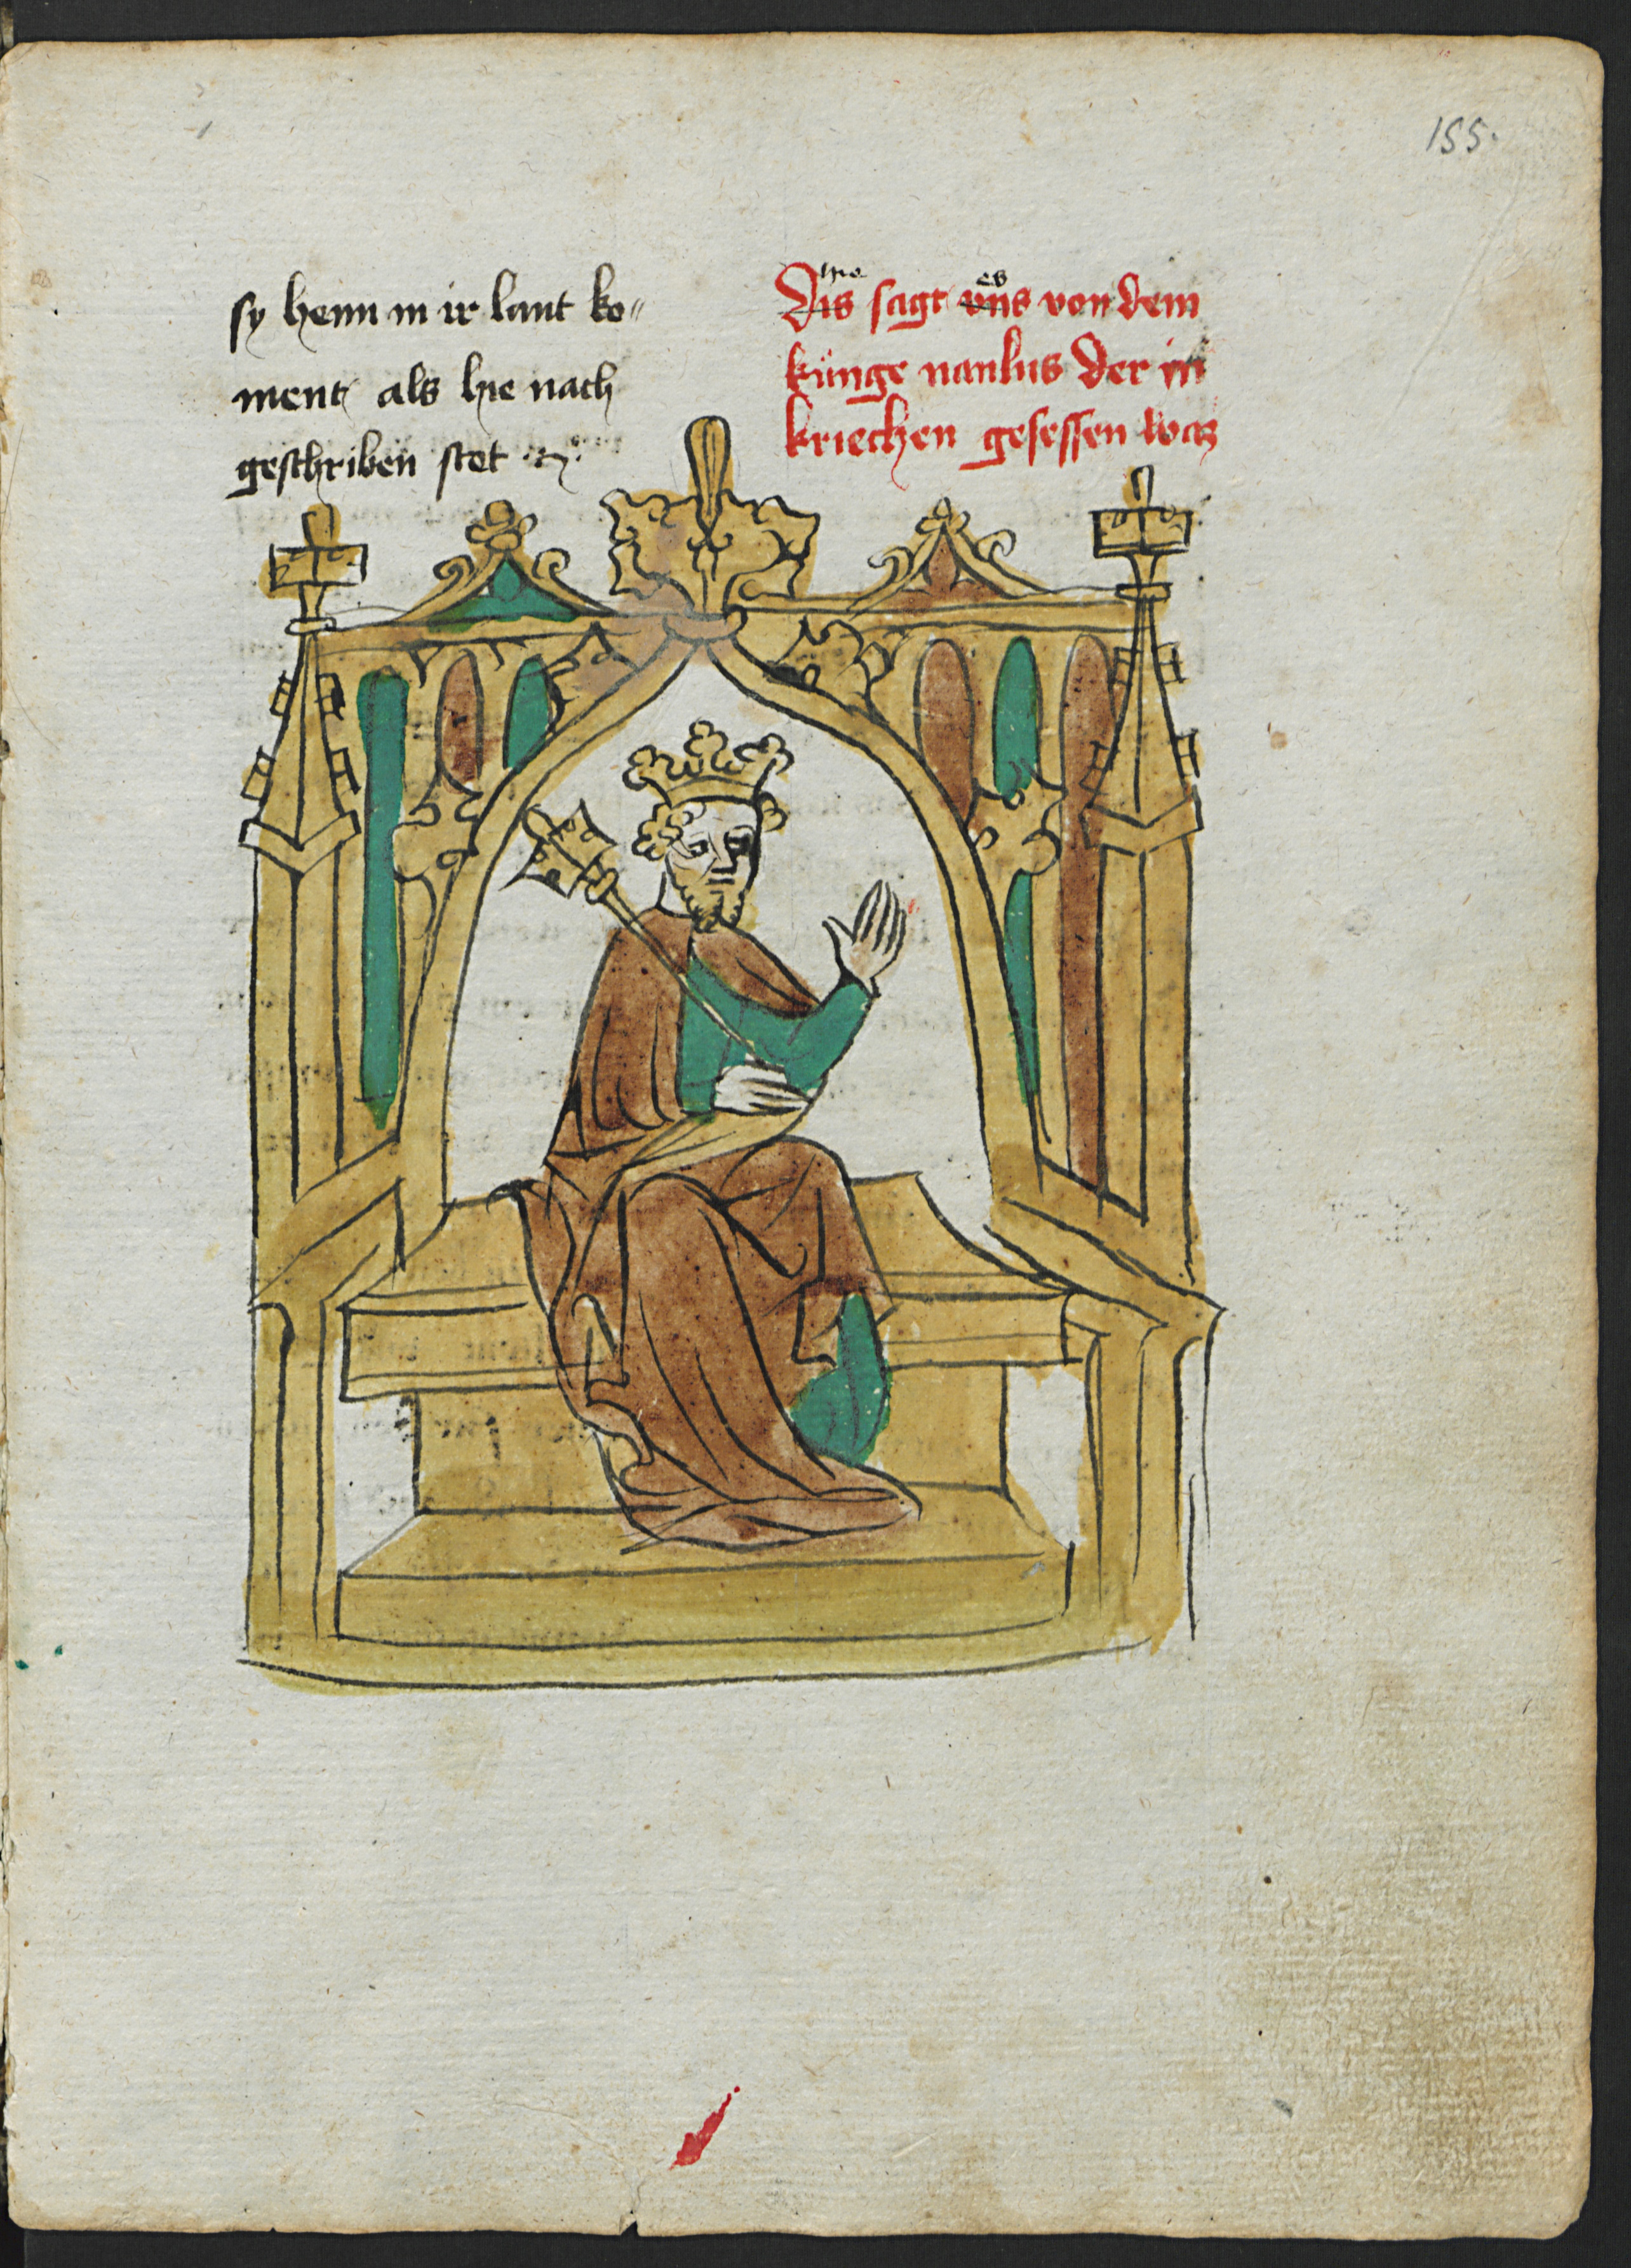 155.
sy heim in ir lant ko„
ment als hie nach
geschriben stet
hie es
Dis sagt vns von dem
künge naulus der in
kriechen gesessen was